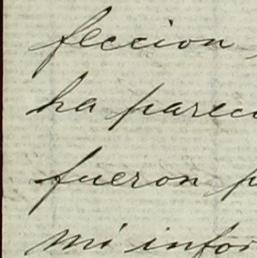 feccion
ha pareci
fueron p
mi infor